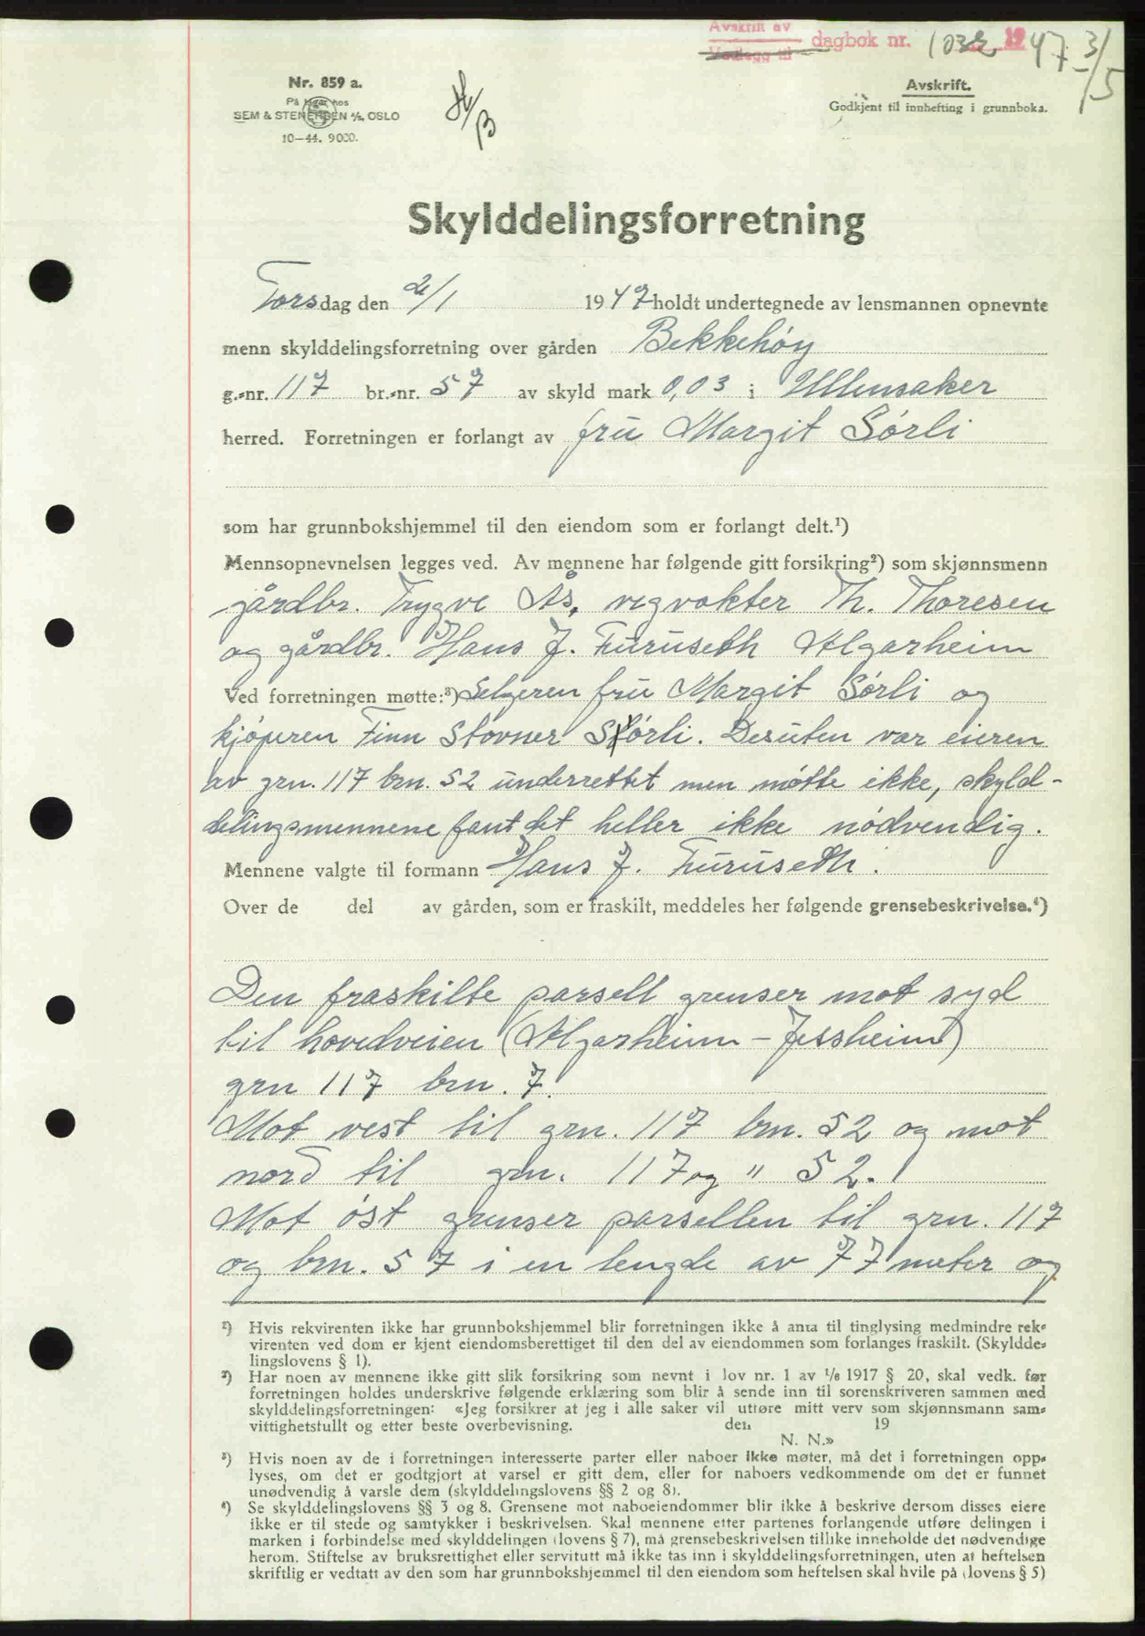 Avskrift av
Vedlegg til
dagbok nr. 1032 1947 3/5
Nr. 859 a.
På lager hos
SEM & STENERSEN A/S, OSLO
10-44. 9000.
Avskrift.
Godkjent til innhefting i grunnboka.
Skylddelingsforretning
Torsdag den 2/1 1947 holdt undertegnede av lensmannen opnevnte
menn skylddelingsforretning over gården Bekkehøy
g.-nr. 117 br.-nr. 57 av skyld mark 0,03 i Ullensaker
herred. Forretningen er forlangt av fru Margit Sørli
som har grunnbokshjemmel til den eiendom som er forlangt delt.¹)
Mennsopnevnelsen legges ved. Av mennene har følgende gitt forsikring²) som skjønnsmenn
gårdbr. Trygve Ås, vegvokter Th. Thoresen
og gårdbr. Hans J. Furuseth Algarheim
Ved forretningen møtte:³) Selgeren fru Margit Sørli og
kjøperen Finn Stovner Sørli. Desuten var eieren
av grn. 117 brn. 52 underrettet men møtte ikke, skyld-
delingsmennene fant det heller ikke nødvendig.
Mennene valgte til formann Hans J. Furuseth.
Over de del av gården, som er fraskilt, meddeles her følgende grensebeskrivelse.⁴)
Den fraskilte parsell grenser mot syd
til hovedveien (Algarheim - Jessheim)
grn 117 brn. 7.
Mot vest til grn. 117 brn. 52 og mot
nord til grn. 117 og " 52.
Mot øst grenser parsellen til grn. 117
og brn. 57 i en lengde av 77 meter og
¹) Hvis rekvirenten ikke har grunnbokshjemmel blir forretningen ikke å anta til tinglysing medmindre rek-
virenten ved dom er kjent eiendomsberettiget til den del av eiendommen som forlanges fraskilt. (Skyldde-
lingslovens § 1).
²) Har noen av mennene ikke gitt slik forsikring som nevnt i lov nr. 1 av 1/6 1917 § 20, skal vedk. før
forretningen holdes underskrive følgende erklæring som blir å sende inn til sorenskriveren sammen med
skylddelingsforretningen: «Jeg forsikrer at jeg i alle saker vil utføre mitt verv som skjønnsmann sam-
vittighetsfullt og etter beste overbevisning. den 19
N. N.»
³) Hvis noen av de i forretningen interesserte parter eller naboer ikke møter, må det i forretningen opp-
lyses, om det er godtgjort at varsel er gitt dem, eller for naboers vedkommende om det er funnet
unødvendig å varsle dem (skylddelingslovens §§ 2 og 8).
⁴) Se skylddelingslovens §§ 3 og 8. Grensene mot naboeiendommer blir ikke å beskrive dersom disses eiere
ikke er til stede og samtykker i beskrivelsen. Skal mennene etter partenes forlangende utføre delingen i
marken i forbindelse med skylddelingen (lovens § 7), må grensebeskrivelsen tillike inneholde det nødvendige
herom. Stiftelse av bruksrettighet eller servitutt må ikke tas inn i skylddelingsforretningen, uten at heftelsen
skriftlig er vedtatt av den som har grunnbokshjemmel til den eiendom som heftelsen skal hvile på (lovens § 5)